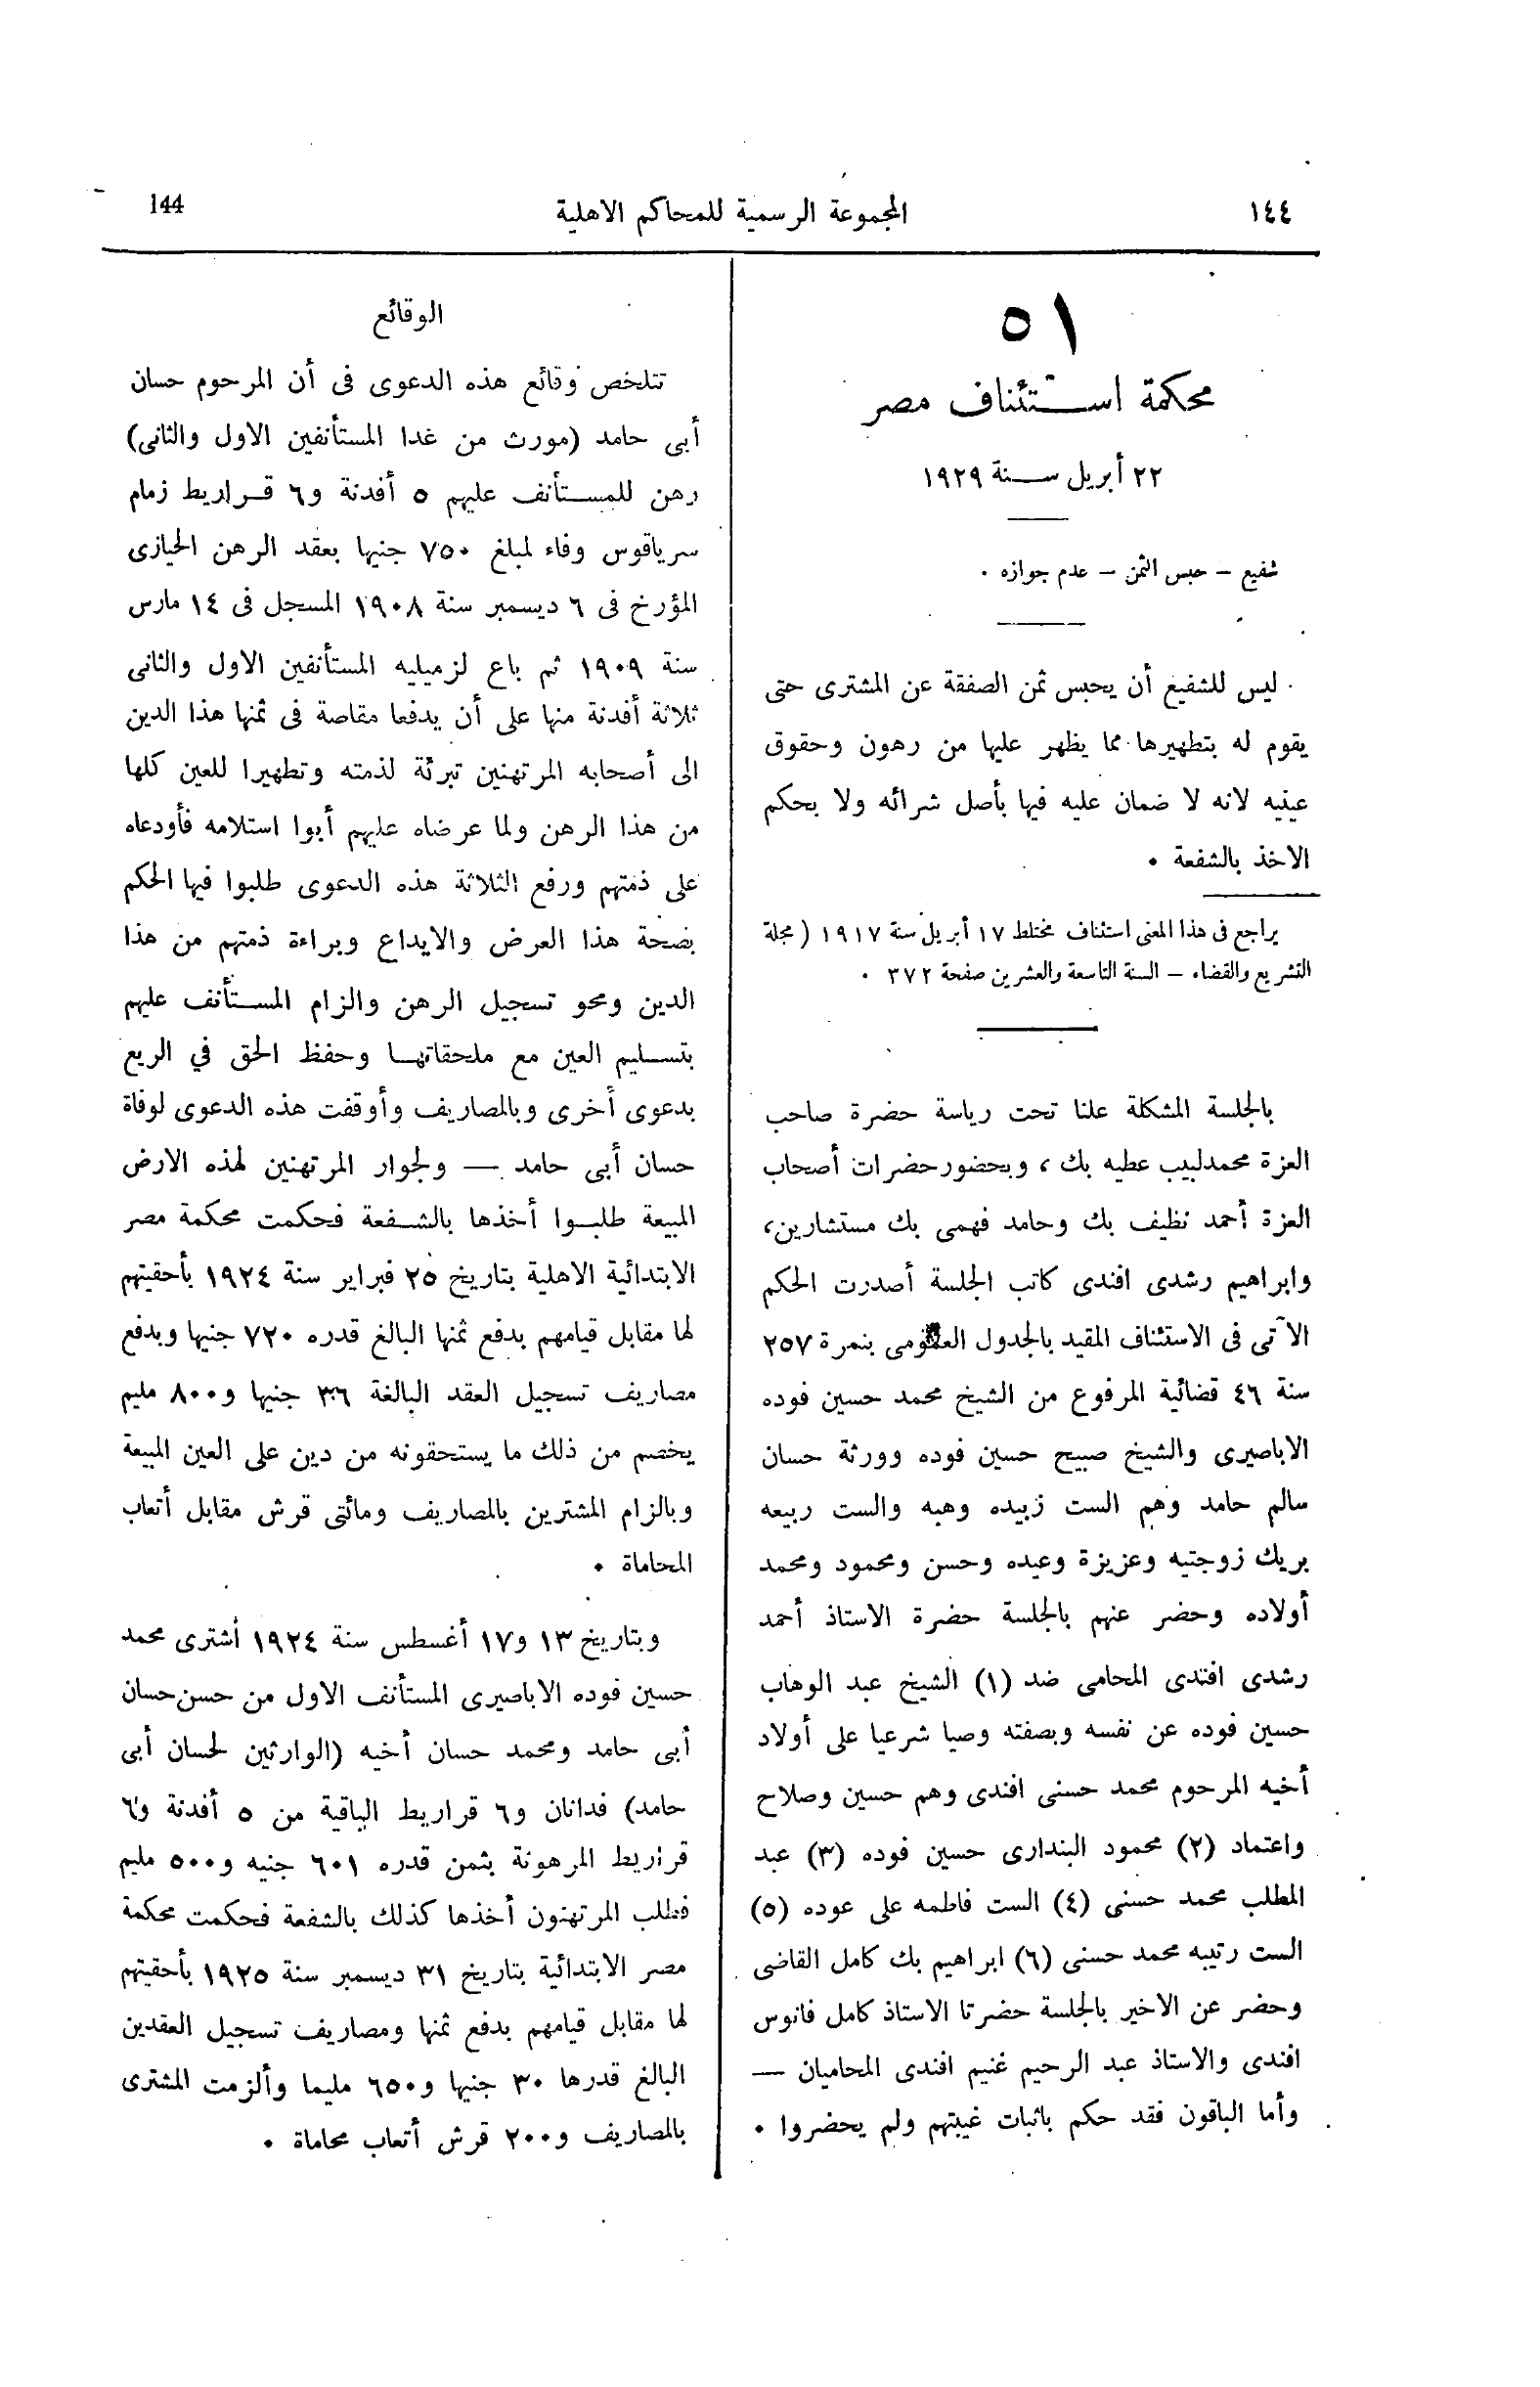 ١٤٤
المجموعة الرسمية للمحاكم الاهلية
144
٥١
محكمة استئناف مصر
٢٢ أبريل سنة ١٩٢٩
شفيع – حبس الثمن – عدم جوازه ٠
ليس للشفيع أن يحبس ثمن الصفقة عن المشترى حتى
يقوم له بتطهيرها مما يظهر عليها من رهون وحقوق
عينيه لانه لا ضمان عليه فيها بأصل شرائه ولا بحكم
الاخذ بالشفعة ٠
يراجع فى هذا المعنى استئناف مختلط ١٧ أبريل سنة ١٩١٧ (مجلة
التشريع والقضاء – السنة التاسعة والعشرين صفحة ٣٧٢ ٠
بالجلسة المشكلة علنا تحت رياسة حضرة صاحب
العزة محمد لبيب عطيه بك ، وبحضور حضرات أصحاب
العزة أحمد نظيف بك وحامد فهمى بك مستشارين،
وابراهيم رشدى افندى كاتب الجلسة أصدرت الحكم
الآتى فى الاستئناف المقيد بالجدول العمومى بنمرة ٢٥٧
سنة ٤٦ قضائية المرفوع من الشيخ محمد حسين فوده
الاباصيرى والشيخ صبيح حسين فوده وورثة حسان
سالم حامد وهم الست زبيده وهبه والست ربيعه
بريك زوجتيه وعزيزة وعيده وحسن ومحمود ومحمد
أولاده وحضر عنهم بالجلسة حضرة الاستاذ أحمد
رشدى افندى المحامى ضد (١) الشيخ عبد الوهاب
حسين فوده عن نفسه وبصفته وصيا شرعيا على أولاد
أخيه المرحوم محمد حسنى افندى وهم حسين وصلاح
واعتماد (٢) محمود البندارى حسين فوده (٣) عبد
المطلب محمد حسنى (٤) الست فاطمه على عوده (٥)
الست رتيبه محمد حسنى (٦) ابراهيم بك كامل القاضى
وحضر عن الاخير بالجلسة حضرتا الاستاذ كامل فانوس
افندى والاستاذ عبد الرحيم غنيم افندى المحاميان —
وأما الباقون فقد حكم باثبات غيبتهم ولم يحضروا ٠
الوقائع
تتلخص وقائع هذه الدعوى فى أن المرحوم حسان
أبى حامد (مورث من عدا المستأنفين الاول والثانى)
رهن للمستأنف عليهم ٥ أفدنة و٦ قراريط زمام
سرياقوس وفاء لمبلغ ٧٥٠ جنيها بعقد الرهن الحيازى
المؤرخ فى ٦ ديسمبر سنة ١٩٠٨ المسجل فى ١٤ مارس
سنة ١٩٠٩ ثم باع لزميليه المستأنفين الاول والثانى
ثلاثة أفدنة منها على أن يدفعا مقاصة فى ثمنها هذا الدين
الى أصحابه المرتهنين تبرئة لذمته وتطهيرا للعين كلها
من هذا الرهن ولما عرضاه عليهم أبوا استلامه فأودعاه
على ذمتهم ورفع الثلاثة هذه الدعوى طلبوا فيها الحكم
بصحة هذا العرض والايداع وبراءة ذمتهم من هذا
الدين ومحو تسجيل الرهن والزام المستأنف عليهم
بتسليم العين مع ملحقاتها وحفظ الحق في الريع
بدعوى أخرى وبالمصاريف وأوقفت هذه الدعوى لوفاة
حسان أبى حامد — ولجوار المرتهنين لهذه الارض
المبيعة طلبوا أخذها بالشفعة فحكمت محكمة مصر
الابتدائية الاهلية بتاريخ ٢٥ فبراير سنة ١٩٢٤ بأحقيتهم
لها مقابل قيامهم بدفع ثمنها البالغ قدره ٧٢٠ جنيها وبدفع
مصاريف تسجيل العقد البالغة ٣٦ جنيها و٨٠٠ مليم
يخصم من ذلك ما يستحقونه من دين على العين المبيعة
وبالزام المشترين بالمصاريف ومائتى قرش مقابل أتعاب
المحاماة ٠
وبتاريخ ١٣ و١٧ أغسطس سنة ١٩٢٤ أشترى محمد
حسين فوده الاباصيرى المستأنف الاول من حسن حسان
أبى حامد ومحمد حسان أخيه (الوارثين لحسان أبى
حامد) فدانان و٦ قراريط الباقية من ٥ أفدنة و٦
قراريط المرهونة بثمن قدره ٦٠١ جنيه و٥٠٠ مليم
فطلب المرتهنون أخذها كذلك بالشفعة فحكمت محكمة
مصر الابتدائية بتاريخ ٣١ ديسمبر سنة ١٩٢٥ بأحقيتهم
لها مقابل قيامهم بدفع ثمنها ومصاريف تسجيل العقدين
البالغ قدرها ٣٠ جنيها و٦٥٠ مليما وألزمت المشترى
بالمصاريف و٢٠٠ قرش أتعاب محاماة ٠